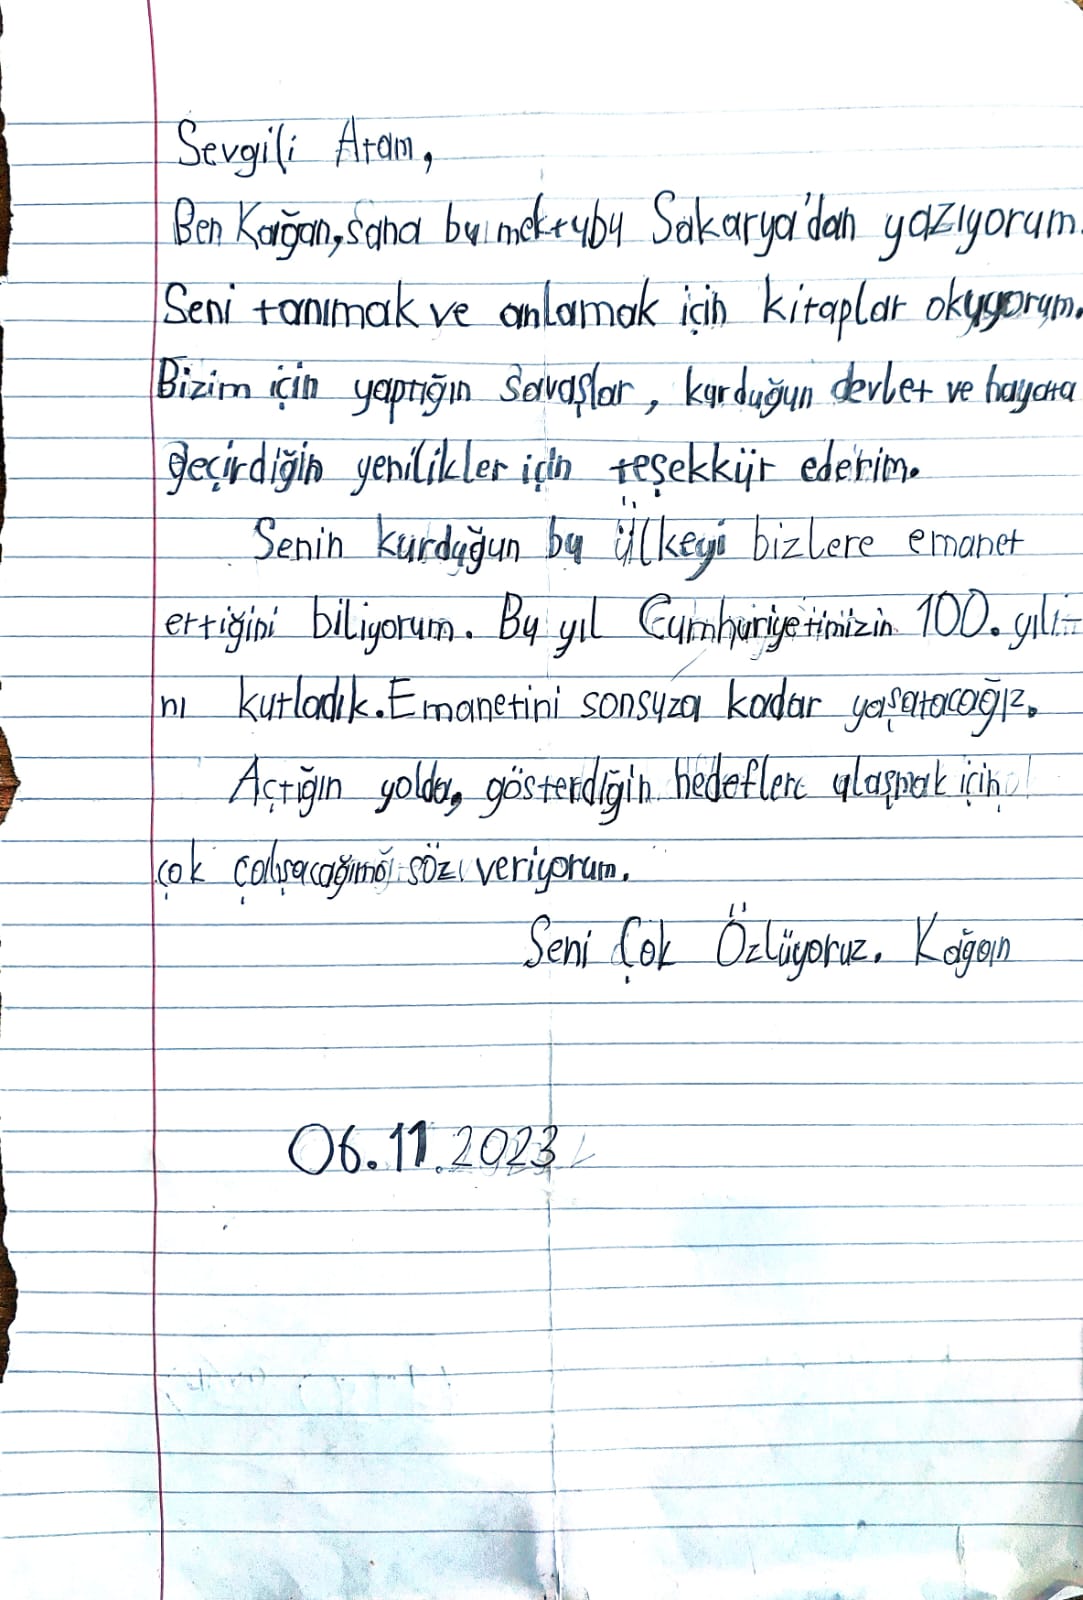 Sevgili Atam,
Ben Kağan, sana bu mektubu Sakarya'dan yazıyorum.
Seni tanımak ve anlamak için kitaplar okuyorum.
Bizim için yaptığın savaşlar, kurduğun devlet ve hayata
geçirdiğin yenilikler için teşekkür ederim.
Senin kurduğun bu ülkeyi bizlere emanet
ettiğini biliyorum. Bu yıl Cumhuriyetimizin 100. yılı-
nı kutladık. Emanetini sonsuza kadar yaşatacağız.
Açtığın yolda, gösterdiğin hedeflere ulaşmak için
çok çalışacağıma söz veriyorum.
Seni Çok Özlüyoruz. Kağan
06.11.2023